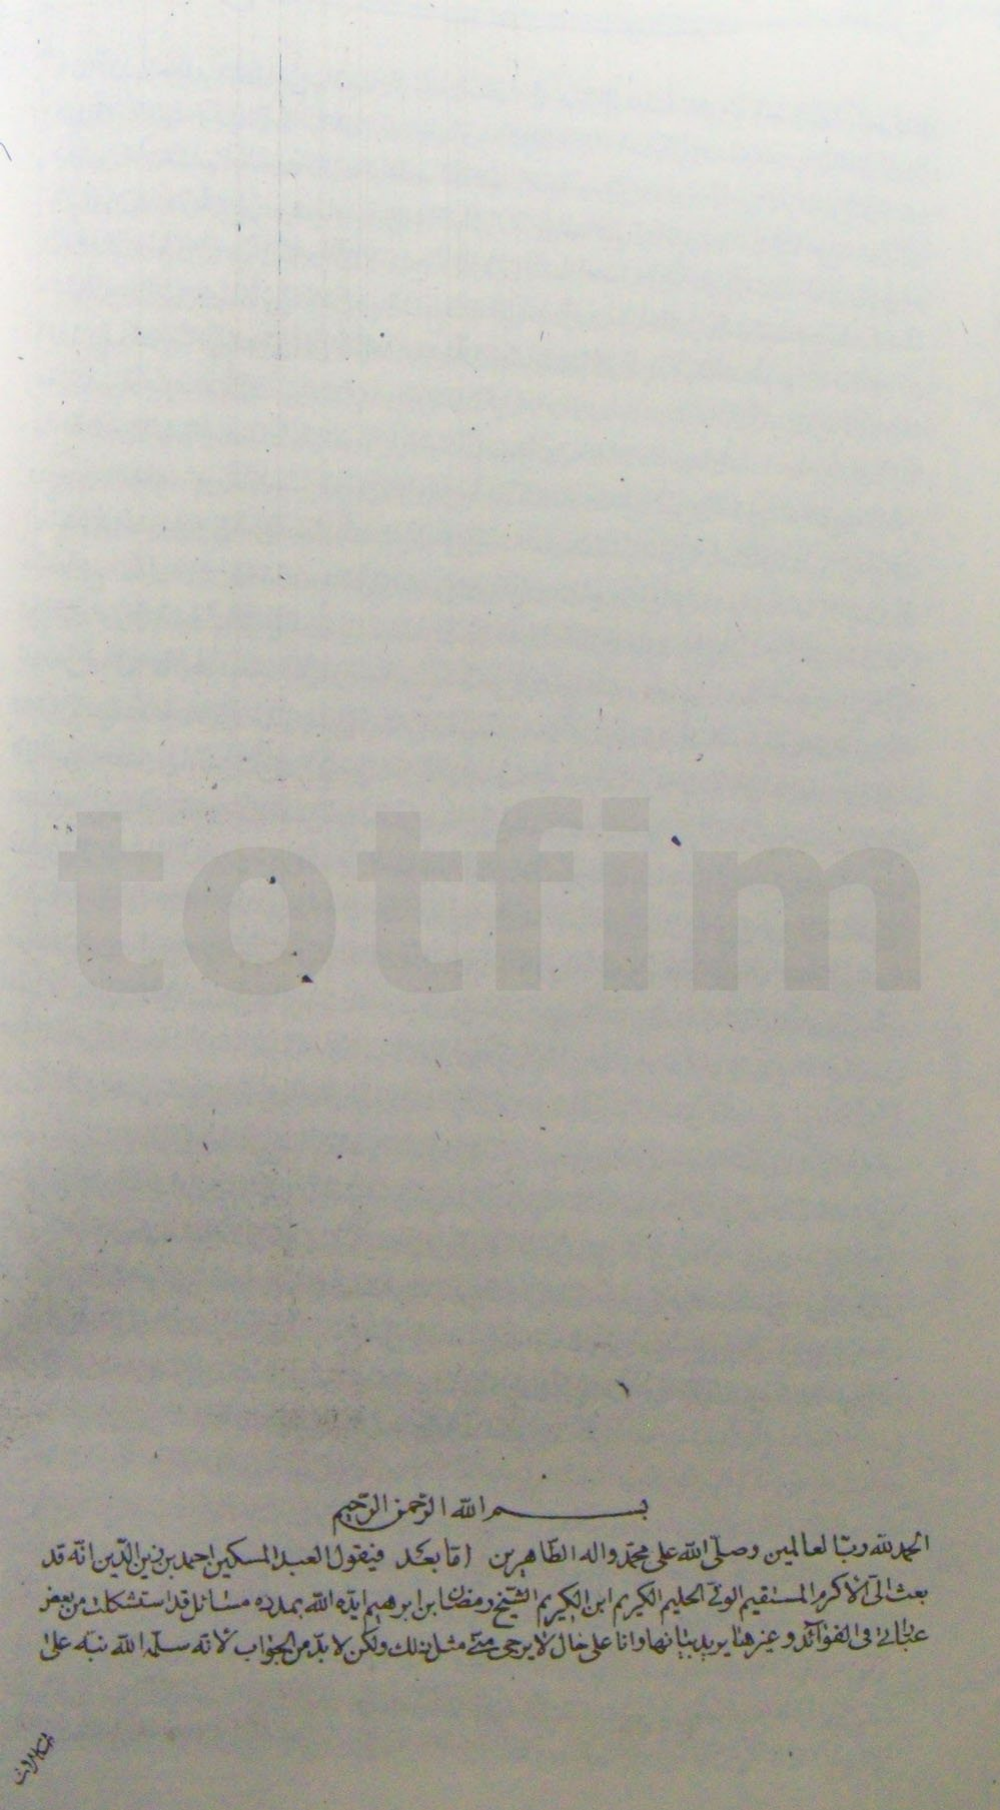 totfim
بسم الله الرّحمن الرّحيم
الحمد لله ربّ العالمين وصلّى الله على محمّد واله الطّاهرين امّا بعد فيقول العبد المسكين احمد بن زين الدّين انّه قد
بعث الىّ الاكرم المستقيم الحليم الكريم ابن الكريم الشّيخ رمضان ابن ابرهيم ايّده الله بمدده مسائل قد استشكلت من بعض
عباراتى فى الفوائد و غيرها يريد بيانها وانا على حال لا يرجى منّى مثل ذلك ولكن لا بدّ من الجواب لانّه سلّمه الله نبّه على